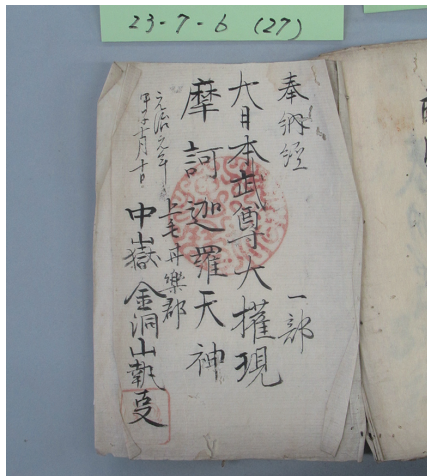 23-7-6 (27)
奉納経
一部
大日本武尊大權現
摩訶迦羅天神
元治元年
甲子
上毛甘樂郡
中嶽 金洞山執叓